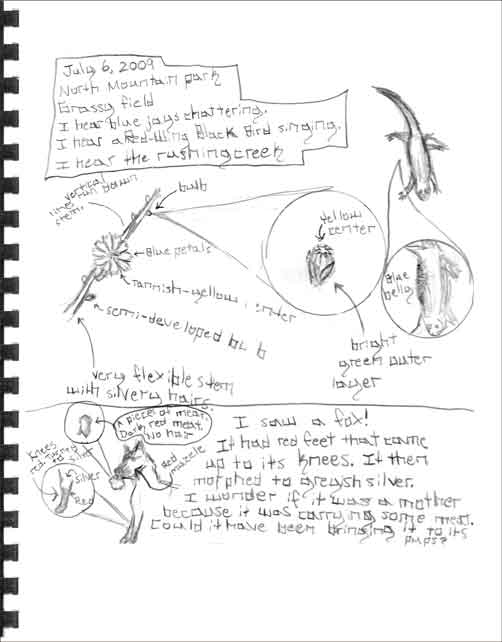 July 6, 2009
North Mountain park
Grassy field
I hear blue jays chattering.
I hear a Red-Wing Black Bird singing.
I hear the rushing creek
vertical
lines run down
stem.
bulb
Blue petals
Tannish-yellow center
semi-developed bulb
very flexible stem
with silvery hairs.
yellow
center
bright
green outer
layer
Blue
belly
A piece of meat.
Dark red meat.
No hair
Knees
red turns
to silver
silver
Red
Red
muzzle
I saw a fox!
It had red feet that came
up to its knees. It then
morphed to greyish silver.
I wonder if it was a mother
because it was carrying some meat.
Could it have been bringing it to its
pups?